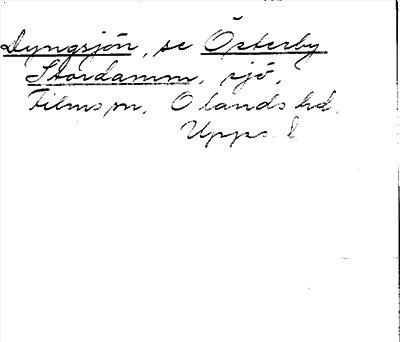 Dyngsjön, se Österby
Stordamm, sjö,
Films sn, Olands hd.
Upps. l